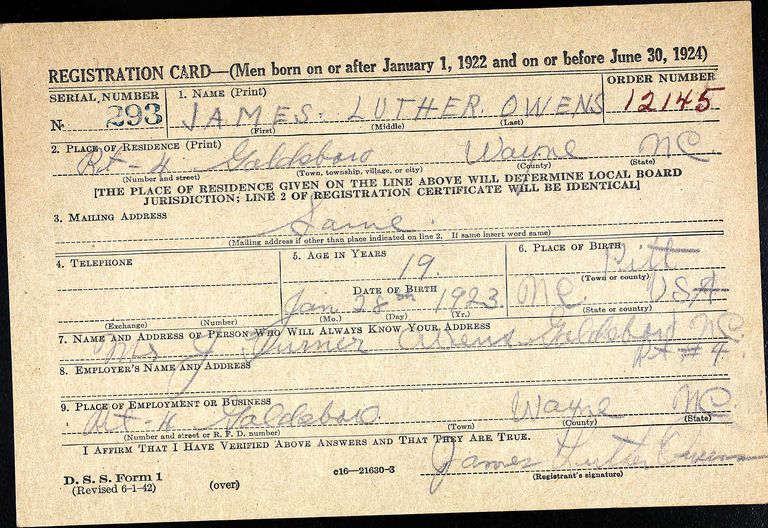 REGISTRATION CARD—(Men born on or after January 1, 1922 and on or before June 30, 1924)
SERIAL NUMBER 1. NAME (Print) ORDER NUMBER
No. 293 JAMES LUTHER OWENS 12145
(First) (Middle) (Last)
2. PLACE OF RESIDENCE (Print)
Rt-4 Goldsboro Wayne NC
(Number and street) (Town, township, village, or city) (County) (State)
[THE PLACE OF RESIDENCE GIVEN ON THE LINE ABOVE WILL DETERMINE LOCAL BOARD
JURISDICTION; LINE 2 OF REGISTRATION CERTIFICATE WILL BE IDENTICAL]
3. MAILING ADDRESS
Same
(Mailing address if other than place indicated on line 2. If same insert word same)
4. TELEPHONE 5. AGE IN YEARS 6. PLACE OF BIRTH
19. Pitt
(Town or county)
DATE OF BIRTH
Jan 28th 1923 NC. USA
(Exchange) (Number) (Mo.) (Day) (Yr.) (State or county)
7. NAME AND ADDRESS OF PERSON WHO WILL ALWAYS KNOW YOUR ADDRESS
Mrs J Turner Owens Goldsboro NC
Rt #4.
8. EMPLOYER'S NAME AND ADDRESS
9. PLACE OF EMPLOYMENT OR BUSINESS
Rt-4 Goldsboro Wayne NC
(Number and street or R. F. D. number) (Town) (County) (State)
I AFFIRM THAT I HAVE VERIFIED ABOVE ANSWERS AND THAT THEY ARE TRUE.
James Luther Owens
D. S. S. Form 1 c16—21630-3 (Registrant's signature)
(Revised 6-1-42) (over)